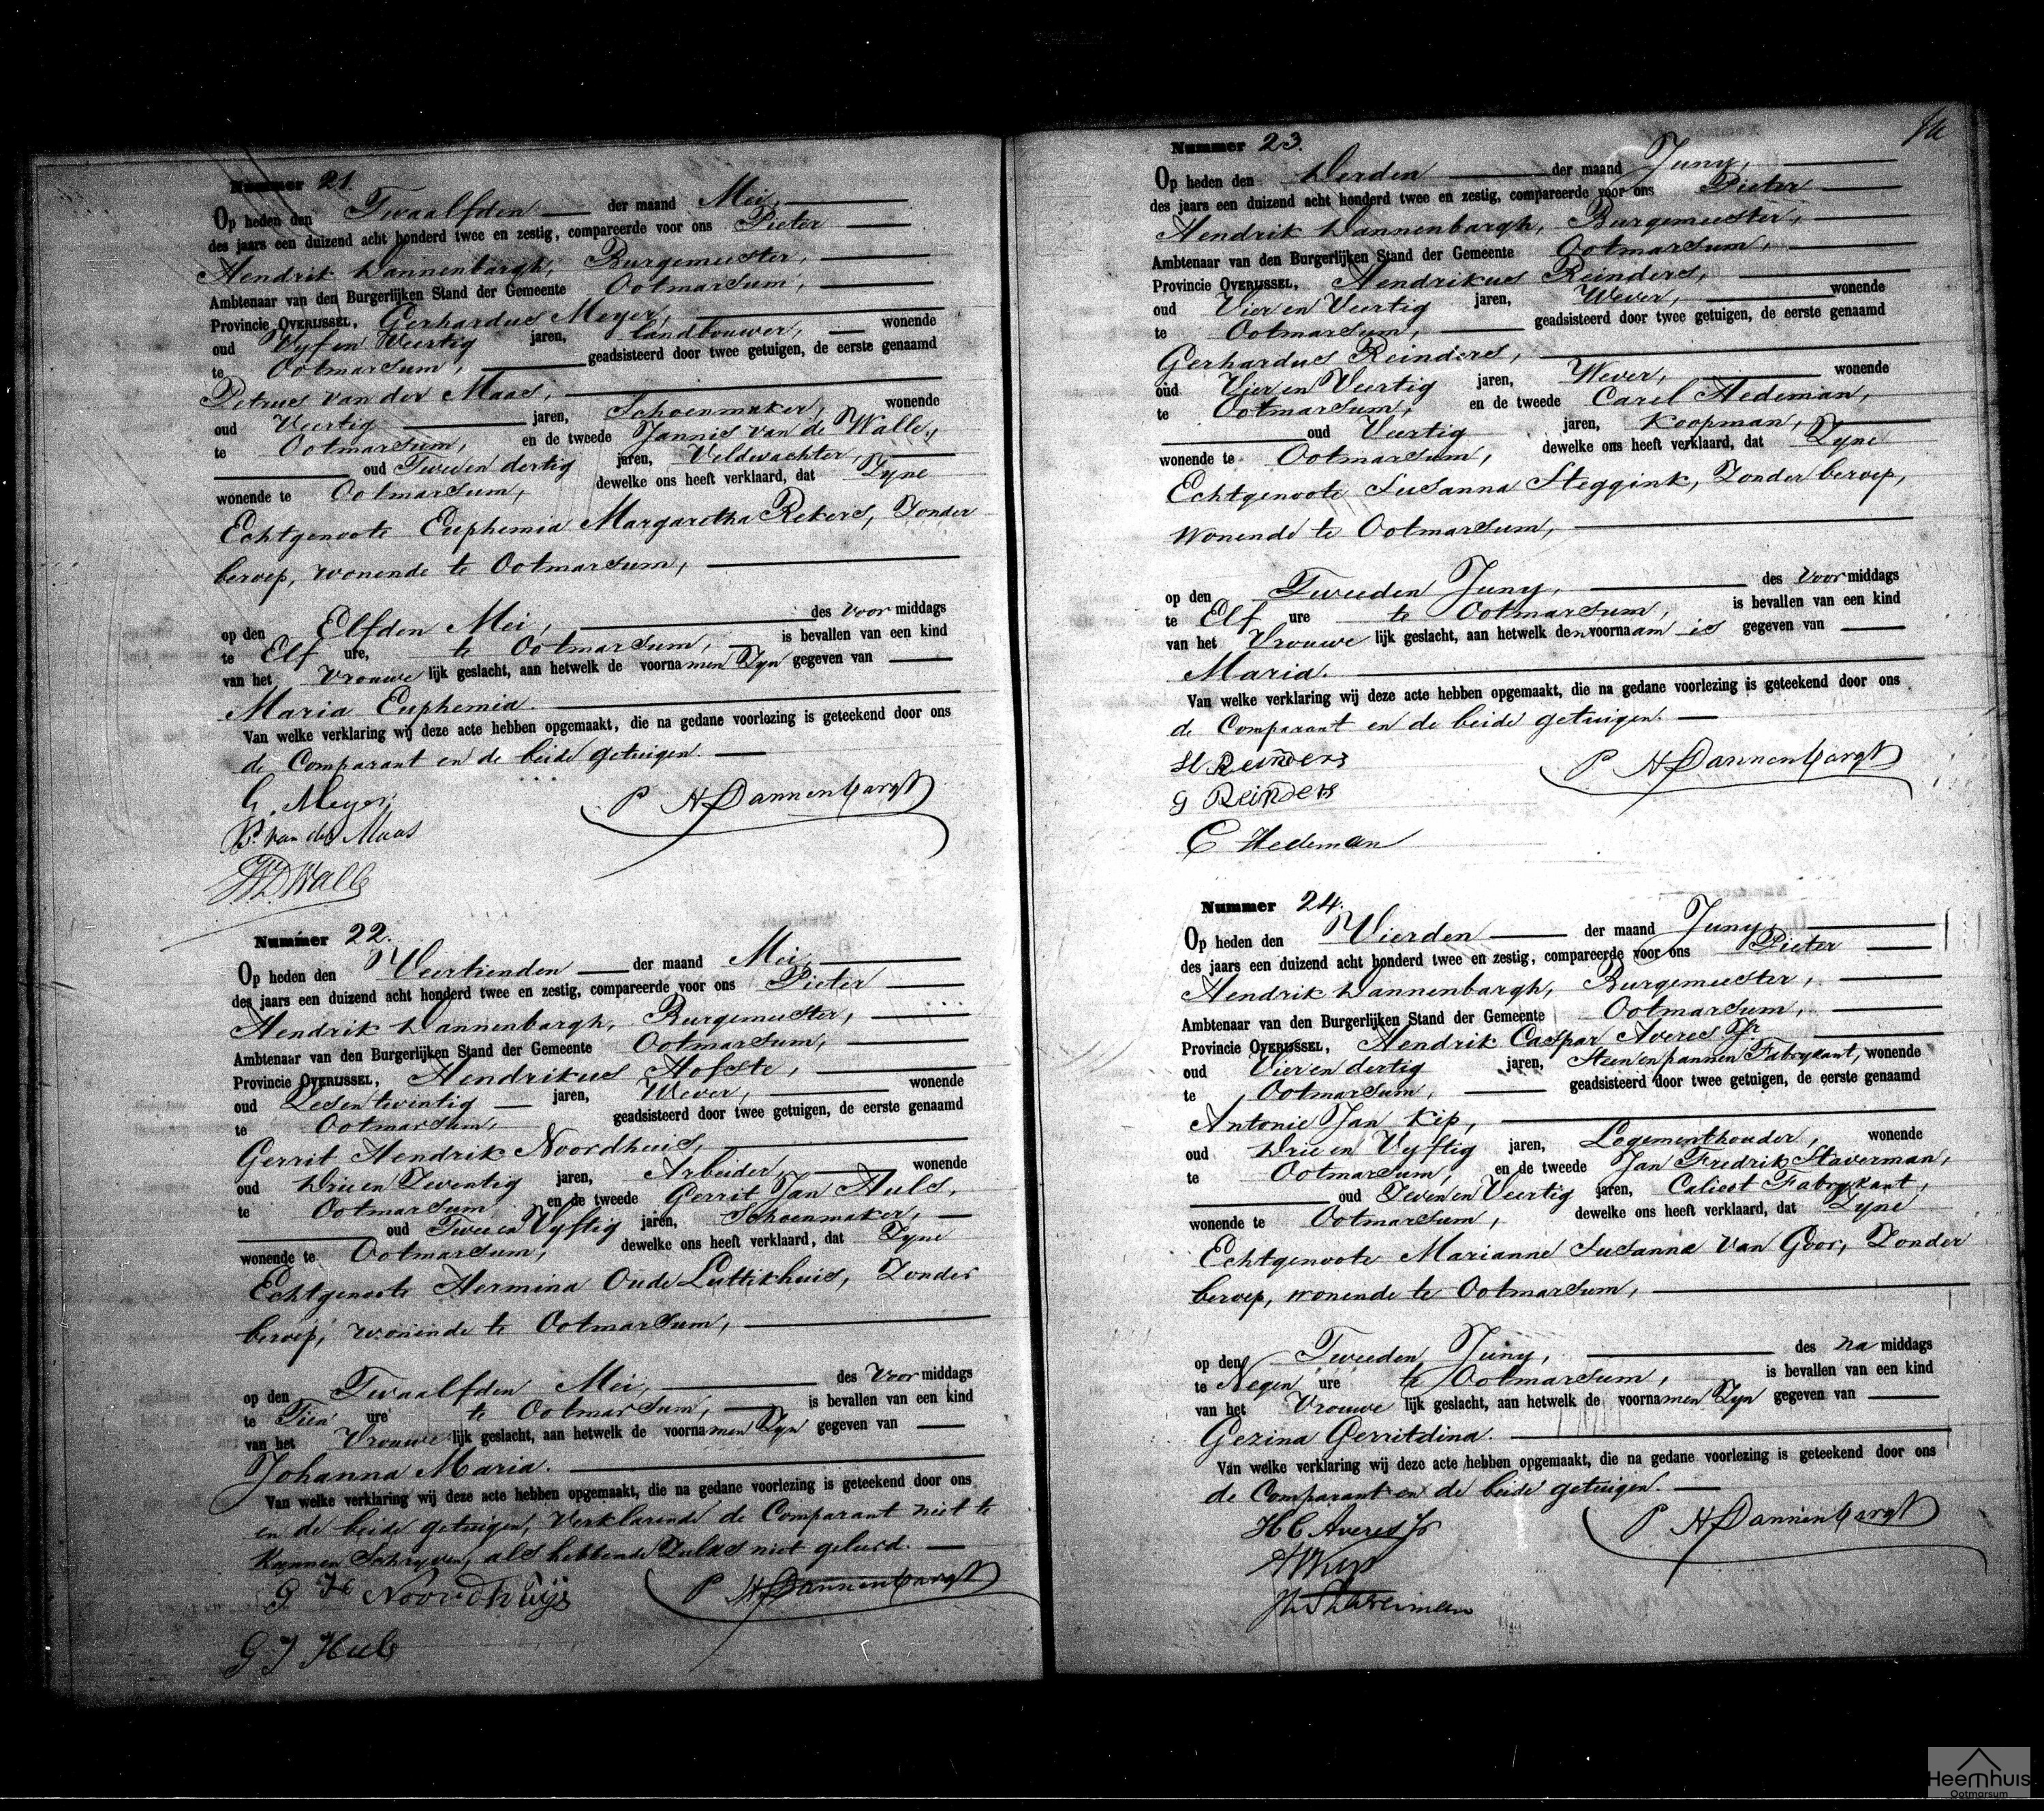 Nummer 21.
Op heden den Twaalfden der maand Mei,
des jaars een duizend acht honderd twee en zestig, compareerde voor ons Pieter
Hendrik Dannenbargh, Burgemeester,
Ambtenaar van den Burgerlijken Stand der Gemeente Ootmarsum,
Provincie OVERIJSSEL, Gerhardus Meyer,
oud Vyf en Veertig jaren, Landbouwer, wonende
te Ootmarsum, geadsisteerd door twee getuigen, de eerste genaamd
Petrus van der Maas,
oud Veertig jaren, Schoenmaker, wonende
te Ootmarsum, en de tweede Jannis van de Walle,
oud Twee en dertig jaren, Veldwachter,
wonende te Ootmarsum, dewelke ons heeft verklaard, dat Zyne
Echtgenoote Euphemia Margaretha Rekers, Zonder
beroep, wonende te Ootmarsum,
op den Elfden Mei, des Voor middags
te Elf ure, te Ootmarsum, is bevallen van een kind
van het Vrouwe lijk geslacht, aan hetwelk de voornamen Zyn gegeven van
Maria Euphemia.
Van welke verklaring wij deze acte hebben opgemaakt, die na gedane voorlezing is geteekend door ons
de Comparant en de beide getuigen.
G. Meyer
P. van der Maas
P H Dannenbargh
Walle
Nummer 22.
Op heden den Veertienden der maand Mei,
des jaars een duizend acht honderd twee en zestig, compareerde voor ons Pieter
Hendrik Dannenbargh, Burgemeester,
Ambtenaar van den Burgerlijken Stand der Gemeente Ootmarsum,
Provincie OVERIJSSEL, Hendrikus Hofste,
oud Zes en twentig jaren, Wever, wonende
te Ootmarsum, geadsisteerd door twee getuigen, de eerste genaamd
Gerrit Hendrik Noordhuis,
oud Drie en Zeventig jaren, Arbeider, wonende
te Ootmarsum en de tweede Gerrit Jan Huls,
oud Twee en Vyftig jaren, Schoenmaker,
wonende te Ootmarsum, dewelke ons heeft verklaard, dat Zyne
Echtgenoote Hermina Oude Luttikhuis, Zonder
beroep, wonende te Ootmarsum,
op den Twaalfden Mei, des Voor middags
te Tien ure te Ootmarsum, is bevallen van een kind
van het Vrouwe lijk geslacht, aan hetwelk de voornamen Zyn gegeven van
Johanna Maria.
Van welke verklaring wij deze acte hebben opgemaakt, die na gedane voorlezing is geteekend door ons
en de beide getuigen, Verklarende de Comparant niet te
Kunnen Schryven, als hebbende Zulks niet geleerd.
G H Noordhuijs
P H Dannenbargh
G J Huls
Nummer 23.
Op heden den Derden der maand Juny,
des jaars een duizend acht honderd twee en zestig, compareerde voor ons Pieter
Hendrik Dannenbargh, Burgemeester,
Ambtenaar van den Burgerlijken Stand der Gemeente Ootmarsum,
Provincie OVERIJSSEL, Hendrikus Reinders,
oud Vier en Veertig jaren, Wever, wonende
te Ootmarsum, geadsisteerd door twee getuigen, de eerste genaamd
Gerhardus Reinders,
oud Vier en Veertig jaren, Wever, wonende
te Ootmarsum, en de tweede Carel Hedeman,
oud Veertig jaren, Koopman,
wonende te Ootmarsum, dewelke ons heeft verklaard, dat Zyne
Echtgenoote Susanna Steggink, Zonder beroep,
wonende te Ootmarsum,
op den Tweeden Juny, des Voor middags
te Elf ure te Ootmarsum, is bevallen van een kind
van het Vrouwe lijk geslacht, aan hetwelk den voornaam is gegeven van
Maria.
Van welke verklaring wij deze acte hebben opgemaakt, die na gedane voorlezing is geteekend door ons
de Comparant en de beide getuigen.
H Reinders
P H Dannenbargh
G Reinders
C Hedeman
Nummer 24.
Op heden den Vierden der maand Juny,
des jaars een duizend acht honderd twee en zestig, compareerde voor ons Pieter
Hendrik Dannenbargh, Burgemeester,
Ambtenaar van den Burgerlijken Stand der Gemeente Ootmarsum,
Provincie OVERIJSSEL, Hendrik Caspar Averes Jr
oud Vier en dertig jaren, Steen en pannen Fabrykant, wonende
te Ootmarsum, geadsisteerd door twee getuigen, de eerste genaamd
Antonie Jan Kip,
oud Drie en Vyftig jaren, Logementhouder, wonende
te Ootmarsum, en de tweede Jan Fredrik Staverman,
oud Zeven en Veertig jaren, Calicot Fabrykant,
wonende te Ootmarsum, dewelke ons heeft verklaard, dat Zyne
Echtgenoote Marianne Susanna van Goor, Zonder
beroep, wonende te Ootmarsum,
op den Tweeden Juny, des na middags
te Negen ure te Ootmarsum, is bevallen van een kind
van het Vrouwe lijk geslacht, aan hetwelk de voornamen Zyn gegeven van
Gezina Gerritdina.
Van welke verklaring wij deze acte hebben opgemaakt, die na gedane voorlezing is geteekend door ons
de Comparant en de beide getuigen.
H C Averes Jr
P H Dannenbargh
Heemhuis
Ootmarsum